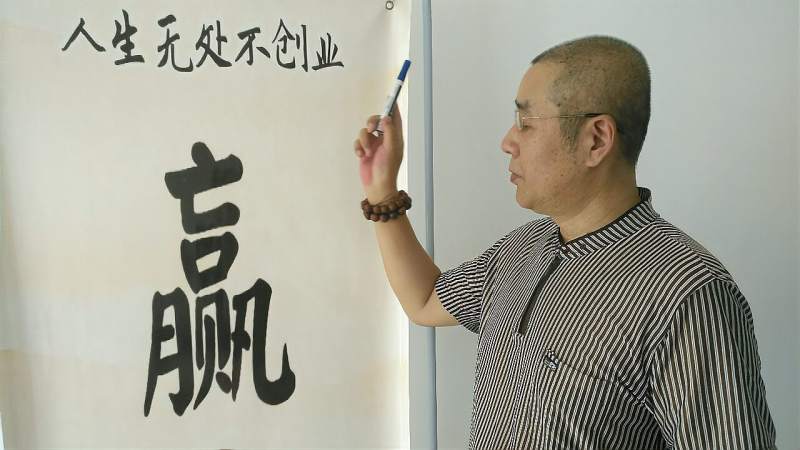 人生无处不创业
赢